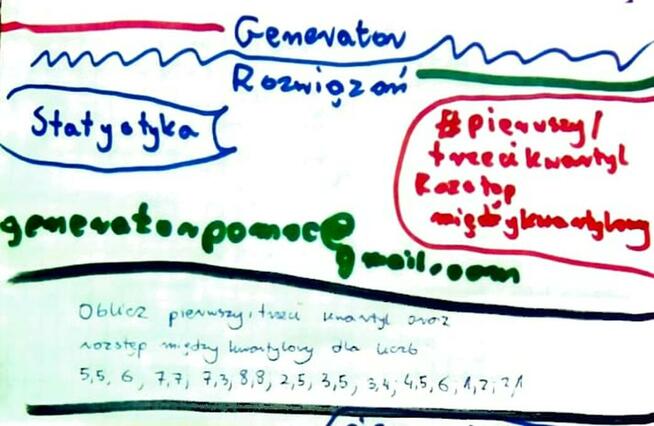 Generator
Rozwiązań
Statystyka
#pierwszy/
trzeci kwartyl
Rozstęp
międzykwartylowy
generatorpomoc@
gmail.com
Oblicz pierwszy i trzeci kwartyl oraz
rozstęp międzykwartylowy dla liczb
5,5, 6, 7,7, 7,3, 8,8, 2,5, 3,5, 3,4, 4,5, 6, 1,2, 2,1